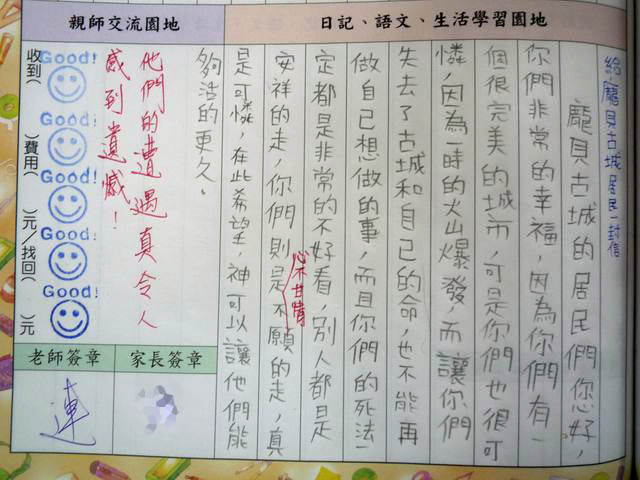 日記、語文、生活學習園地
給龐貝古城居民一封信
龐貝古城的居民們您好,
你們非常的幸福,因為你們有一
個很完美的城市,可是你們也很可
憐,因為一時的火山爆發,而讓你們
失去了古城和自己的命,也不能再
做自己想做的事,而且你們的死法一
定都是非常的不好看,別人都是
心不甘情
安祥的走,你們則是不願的走,真
是可憐,在此希望,神可以讓他們能
夠活的更久。
親師交流園地
他們的遭遇真令人
感到遺憾!
Good!
Good!
Good!
Good!
Good!
收到( )費用( )元/找回( )元
家長簽章
老師簽章
連